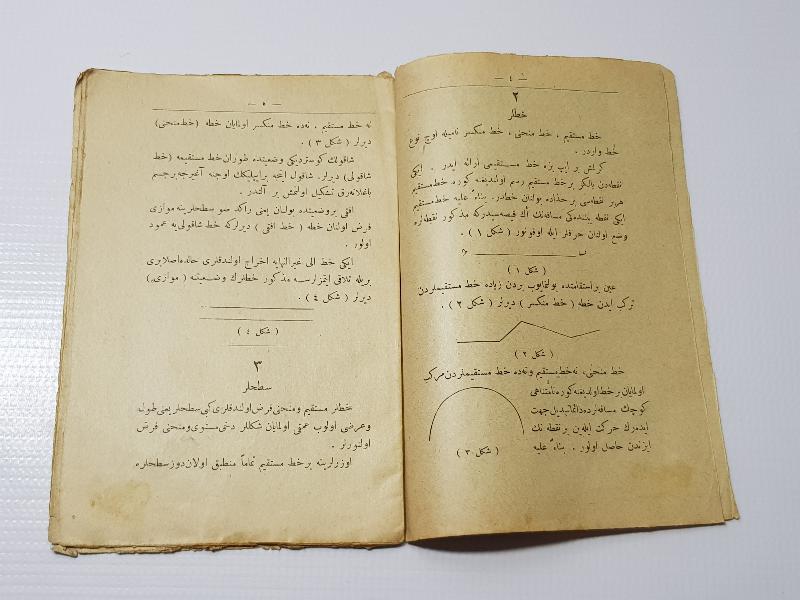 — ٤ —
٢
خطلر
خط مستقیم ، خط منحنی ، خط منکسر نامیله اوچ نوع
خط واردر .
کرلمش بر ایپ بزه خط مستقیمی ارائه ایدر . ایکی
نقطه‌دن یالکز بر خط مستقیم رسم اولندیغنه کوره خط مستقیم
هربر نقطه‌سی برحذاده بولنان خطدر . بناءً علیه خط مستقیم
ایکی نقطه بیننده‌کی مسافه‌نك اك قیصه‌سیدرکه مذکور نقطه‌لره
وضع اولنان حرفلر ایله اوقونور ( شکل ١ ) .
( شکل ١ )
عین بر استقامتده بولنمایوب بردن زیاده خط مستقیملردن
ترکب ایدن خطه ( خط منکسر ) دیرلر ( شکل ٢ ) .
( شکل ٢ )
خط منحنی ، نه خط مستقیم ونه‌ده خط مستقیملردن مرکب
اولمایان برخط اولدیغنه کوره نامتناهی
کوچك مسافه‌لرده دائما تبدیل جهت
ایده‌رك حرکت ایله‌ین بر نقطه نك
ایزندن حاصل اولور . بناءً علیه
( شکل ٣ )
— ٥ —
نه خط مستقیم ، نه‌ده خط منکسر اولمایان خطه ( خط منحنی )
دیرلر ( شکل ٣ ) .
شاقولك کوستردیکی وضعیتده طوران خط مستقیمه ( خط
شاقولی ) دیرلر. شاقول اینجه برایپلیکك اوجنه آغیرجه برجسم
باغلانه‌رق تشکیل اولنمش بر آلتدر .
افقی بروضعیتده بولنان یعنی راکد صو سطحلرینه موازی
فرض اولنان خطه ( خط افقی ) دیرلرکه خط شاقولی یه عمود
اولور .
ایکی خط الی غیرالنهایه اخراج اولندقلری حالده اصلا بری
بریله تلاقی ایتمزلرسه مذکور خطلرك وضعیتنه ( موازی )
دیرلر ( شکل ٤ ) .
( شکل ٤ )
٣
سطحلر
خطلر مستقیم ومنحنی فرض اولندقلری کبی سطحلر یعنی طول
وعرضی اولوب عمقی اولمایان شکللر دخی مستوی ومنحنی فرض
اولنورلر .
اوزرلرینه برخط مستقیم تماماً منطبق اولان دوز سطحلره